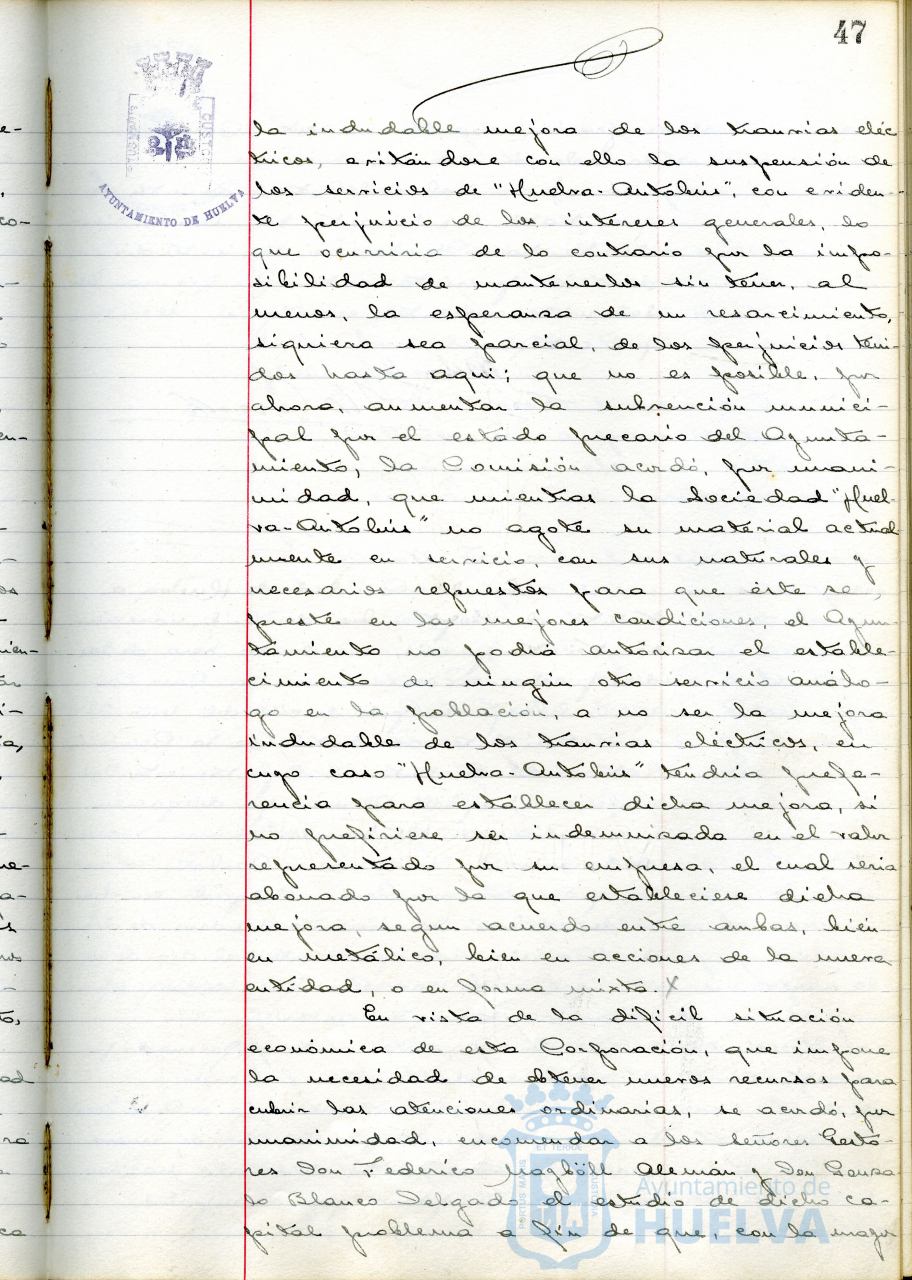 47
AYUNTAMIENTO DE HUELVA
la indudable mejora de los tranvías eléc
tricos, evitándose con ello la suspensión de
los servicios de "Huelva-Autobús", con eviden-
te perjuicio de los intereses generales, lo
que ocurriría de lo contrario por la impo-
sibilidad de mantenerlos sin tener, al
menos, la esperanza de un resarcimiento,
siquiera sea parcial, de los perjuicios teni-
dos hasta aquí; que no es posible, por
ahora, aumentar la subvención munici-
pal por el estado precario del Ayunta-
miento, la Comisión acordó, por unani-
midad, que mientras la Sociedad "Huel-
va-Autobús" no agote su material actual
mente en servicio, con sus naturales y
necesarios repuestos para que éste se
preste en las mejores condiciones, el Ayun-
tamiento no podrá autorizar el estable-
cimiento de ningún otro servicio análo-
go en la población, a no ser la mejora
indudable de los tranvías eléctricos, en
cuyo caso "Huelva-Autobús" tendría prefe-
rencia para establecer dicha mejora, si
no prefiriese ser indemnizada en el valor
representado por su empresa, el cual sería
abonado por la que estableciese dicha
mejora, segun acuerdo entre ambas, bién
en metálico, bien en acciones de la nueva
entidad, o en forma mixta.
En vista de la difícil situación
económica de esta Corporación, que impone
la necesidad de obtener nuevos recursos para
cubrir las atenciones ordinarias, se acordó, por
unanimidad, encomendar a los señores Gesto-
res Don Federico Alemán y Don Gonza-
lo Blanco Delgado el estudio de dicho ca-
pital problema a fin de que, con la mayor
Ayuntamiento de
HUELVA